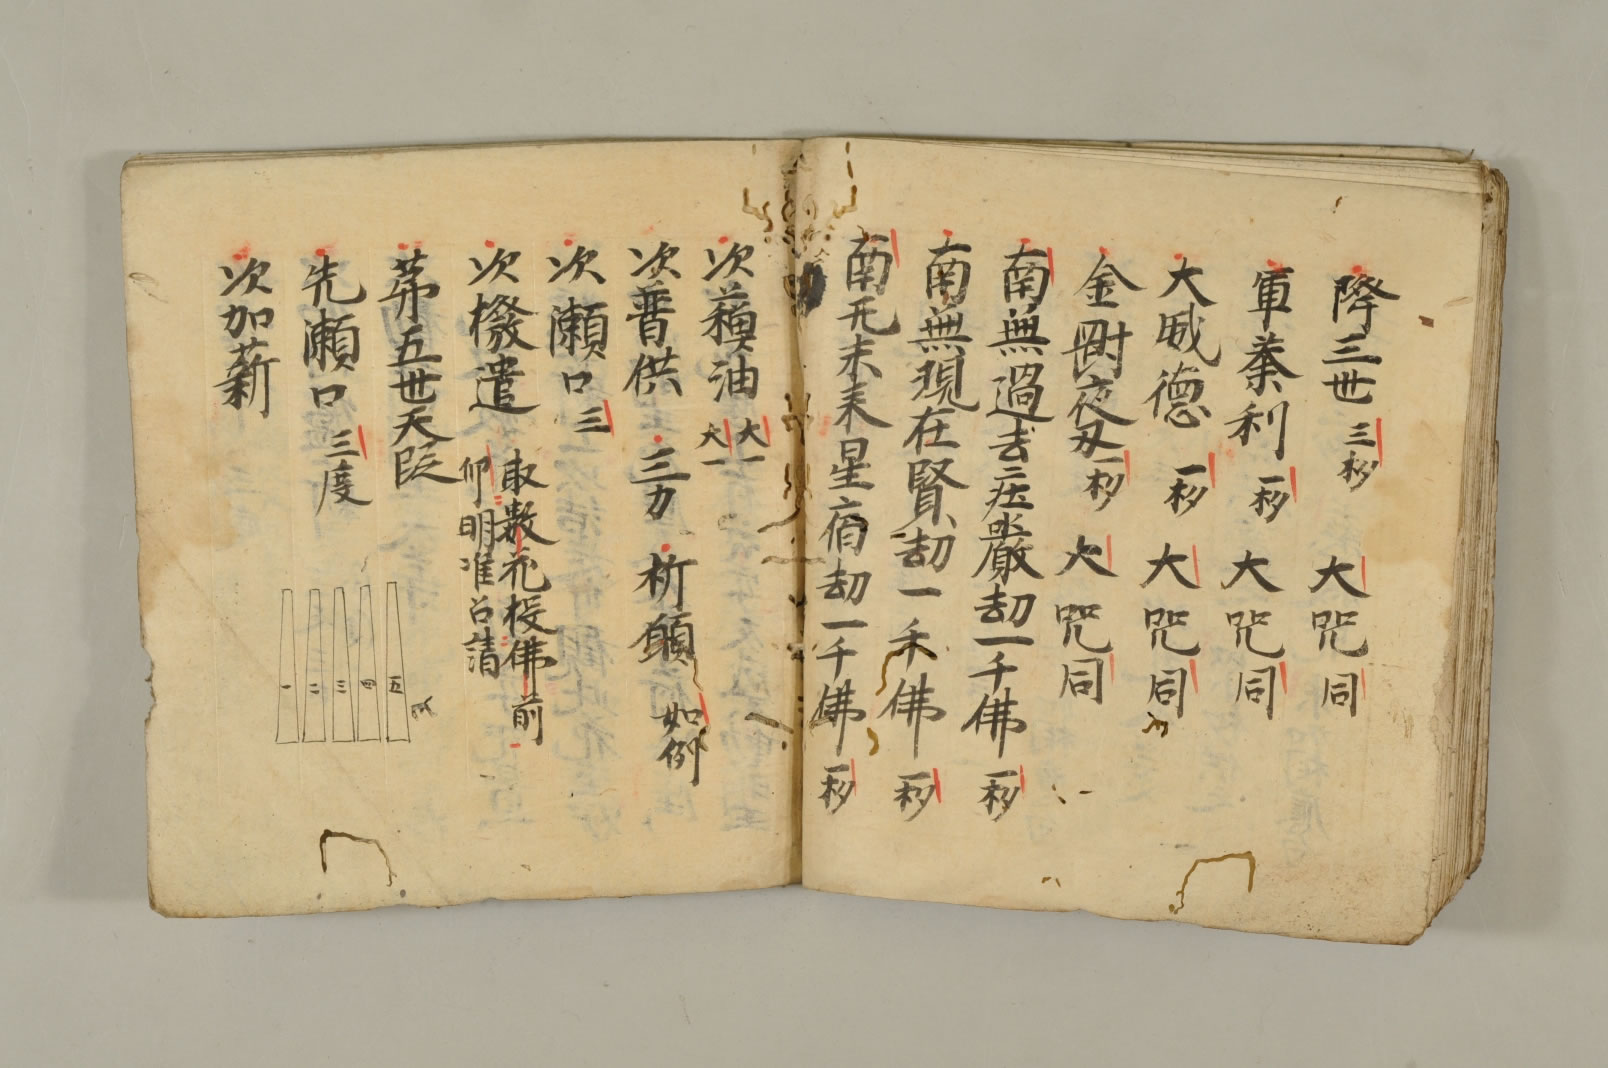 降三世 三杪 大咒同
軍荼利 一杪 大咒同
大威德 一杪 大咒同
金剛夜叉 一杪 大咒同
南無過去庄嚴劫一千佛 一杪
南無現在賢劫一千佛 一杪
南无未来星宿劫一千佛 一杪
次蘓油 大一 大一
次普供 三力 祈願 如例
次瀬口 三
次撥遣 取数花投佛前
仰明唯召請
第五世天段
先瀬口 三度
次加薪
一 二 三 四 五